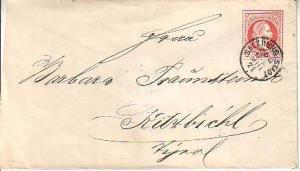 Frau
Barbara Traunsteiner
Kitzbichl
Tyrol
SALZBURG STADT